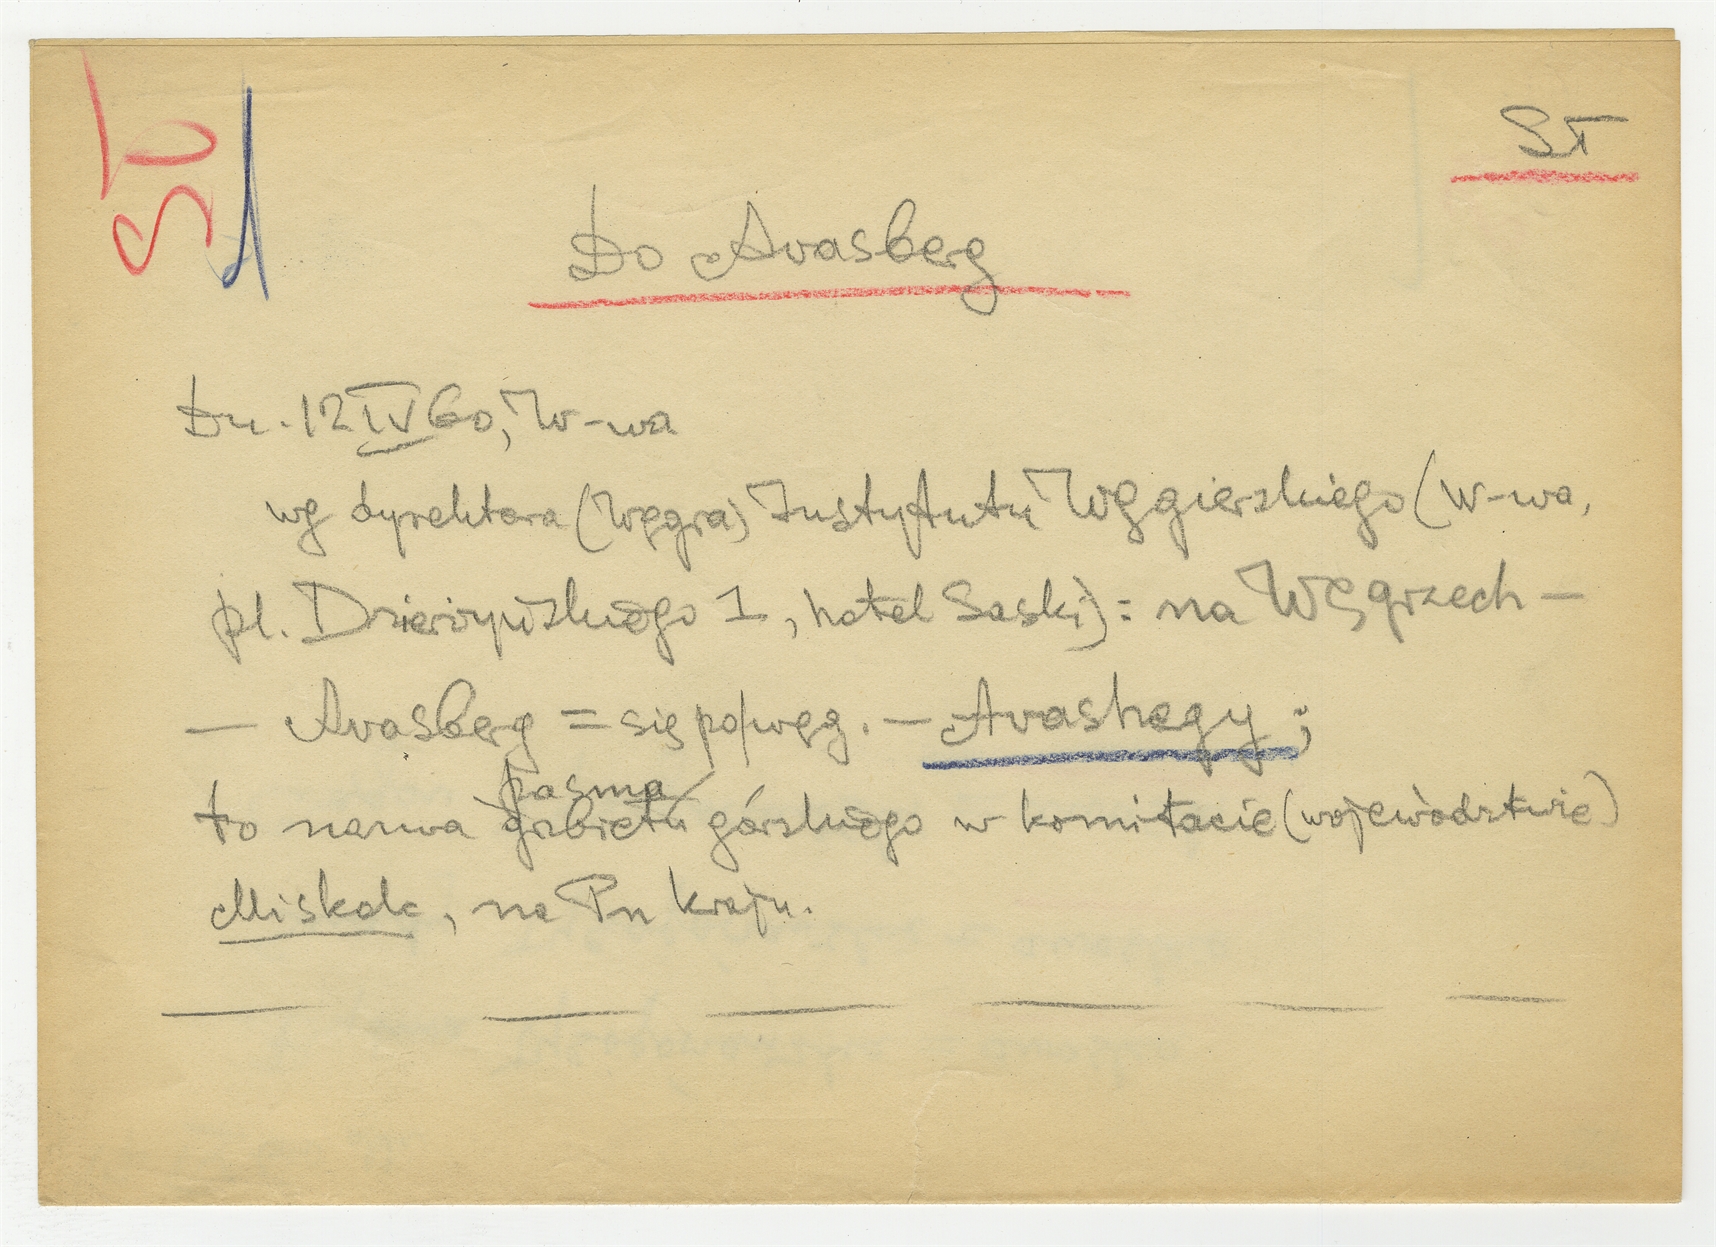 St
Do Avasberg
Dn. 12 IV 60, W-wa
wg dyrektora (Węgra) Instytutu Węgierskiego (W-wa,
pl. Dzierżyńskiego 1, hotel Saski): na Węgrzech –
– Avasberg = się po/węg. – Avashegy;
pasma
to nazwa grzbietu górskiego w komitacie (województwie)
Miskolc, na Pn kraju.